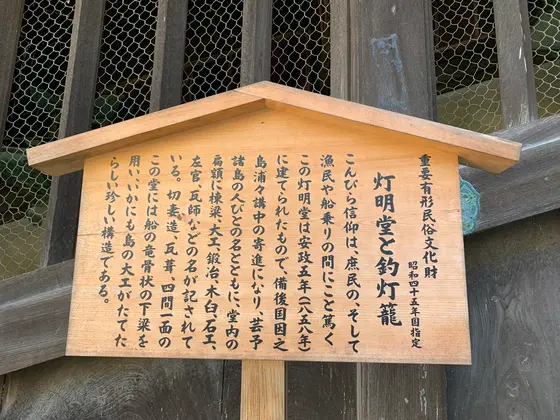 重要有形民俗文化財
昭和四十五年国指定
灯明堂と釣灯籠
こんぴら信仰は、庶民の、そして
漁民や船乗りの間にこと篤く
この灯明堂は安政五年(一八五八年)
に建てられたもので、備後国因之
島浦々講中の寄進になり、芸予
諸島の人びとの名とともに、堂内の
扁額に棟梁、大工、鍛冶、木臼、石工、
左官、瓦師などの名が記されて
いる。切妻造、瓦葺、四間一面の
この堂には船の竜骨状の下梁を
用い、いかにも島の大工がたてた
らしい珍しい構造である。